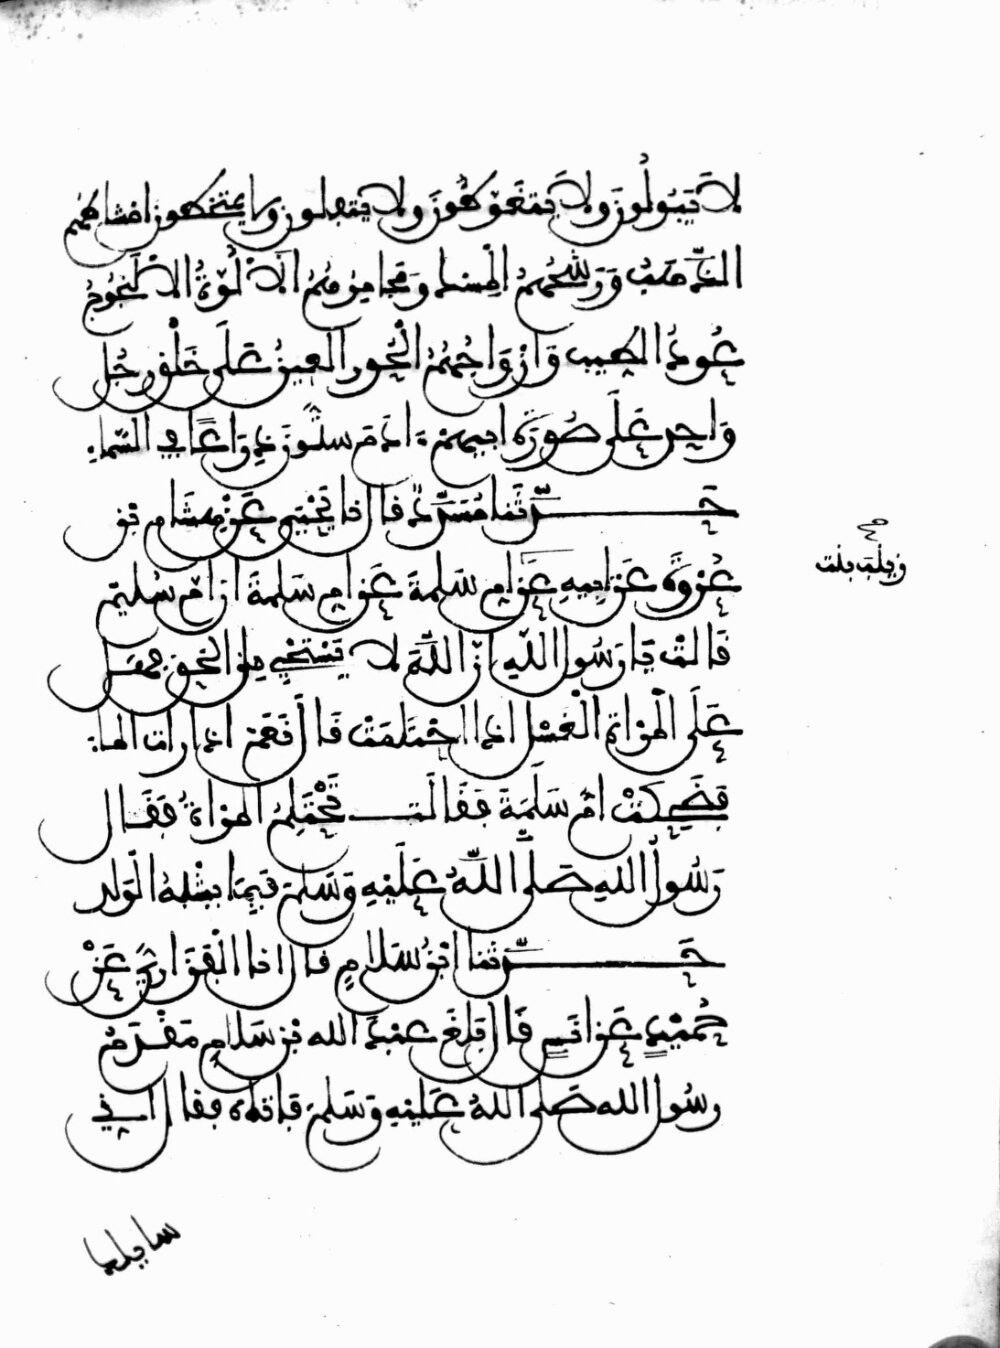 لَا يَبُولُونَ وَلَا يَتَغَوَّطُونَ وَلَا يتفلون ولا يمتخطون امشاطهم
الذَّهَبُ وَرَشْحُهُمُ الْمِسْك وَمَجَامِرُهُمُ الْأَلُوَّةُ الْأَلَنْجُوجُ
عُودُ الطيب وَأَزْوَاجُهُمُ الْحُور العِينُ عَلَى خَلْقِ رَجُل
وَاحِد عَلَى صُورَةِ ابيهم ءادَمَ ستُّونَ ذِرَاعًا في السَّمَاء
حَدَّثَنَا مُسَدَّدٌ قَالَ نا يَحْيَى عَنْ هِشَام بْن
عُرْوَةَ عَنْ ابِيهِ عَن ام سَلمةَ عَن ام سَلمةَ ان امَّ سُليم
قَالتْ يَا رَسُول اللَّهِ انَّ اللَّهَ لا يَسْتَحْيِي مِن الحق فهل
عَلَى الْمَرْأة الْغُسْل اذا احْتَلَمَتْ قَالَ نَعَمْ اذا رات الماء
فضَحِكتْ امُّ سَلَمَةَ فَقَالَت تَحْتَلِمُ المرْاةُ فَقَال
رَسُولُ اللهِ صَلَّى اللَّهُ عَلَيْهِ وَسَلم فَبِمَا يشْبهُ الْوَلد
حَدَّثنا ابْنُ سَلَامٍ قَالَ انا الْفَزَارِيُّ عَنْ
حُمَيْدٍ عَن انَسٍ قَالَ بَلَغَ عبْدَ الله بْن سَلَامٍ مَقْدَمُ
رسُول الله صَلى اللهُ عَلَيْهِ وَسَلم فَاتاه فقال اني